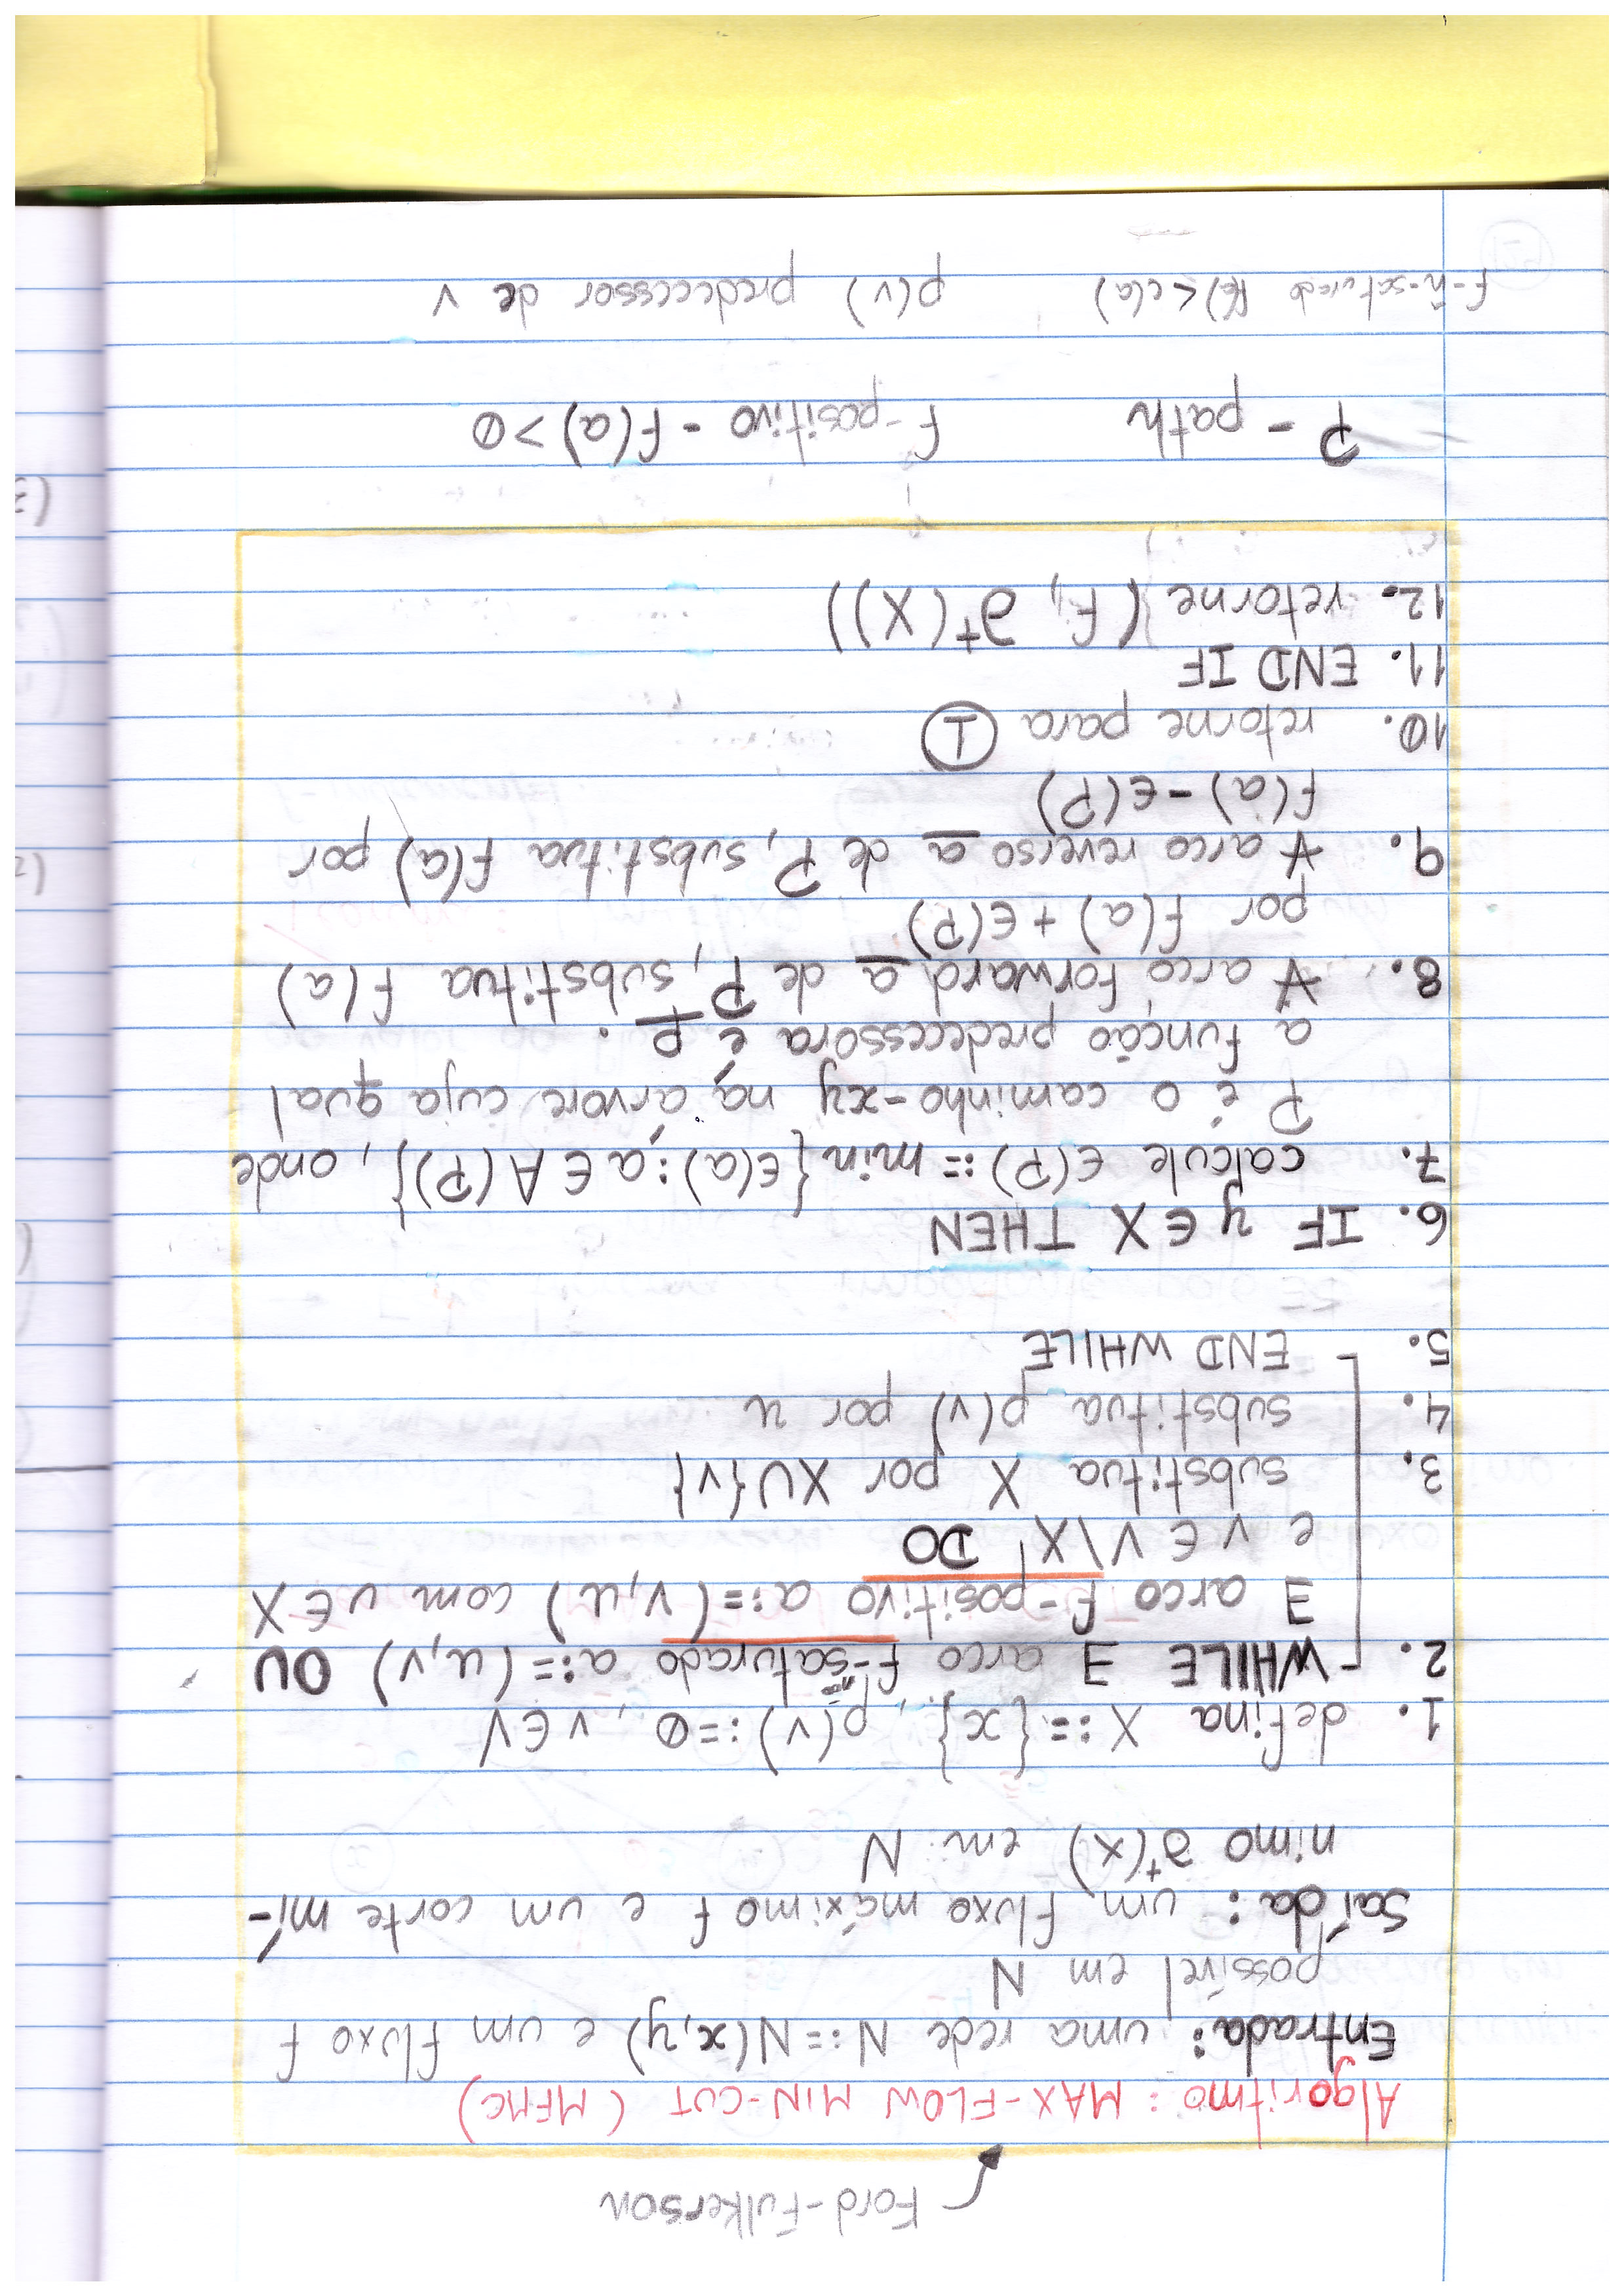 Ford-Fulkerson
Algoritmo: MAX-FLOW MIN-CUT (MFMC)
Entrada: uma rede N:=N(x,y) e um fluxo f
possível em N
Saída: um fluxo máximo f e um corte mí-
nimo ∂⁺(X) em N
1. defina X:={x}, p(v):=∅, v∈V
2. WHILE ∃ arco f-ñ-saturado a:=(u,v) OU
∃ arco f-positivo a:=(v,u) com u∈X
e v∈V\X DO
3. substitua X por X∪{v}
4. substitua p(v) por u
5. END WHILE
6. IF y∈X THEN
7. calcule ϵ(P):=min{ϵ(a):a∈A(P)}, onde
P é o caminho-xy na árvore cuja qual
a função predecessora é p.
8. ∀ arco forward a de P, substitua f(a)
por f(a)+ϵ(P)
9. ∀ arco reverso a de P, substitua f(a) por
f(a)-ϵ(P)
10. retorne para ①
11. END IF
12. retorne (f, ∂⁺(X))
P - path f-positivo - f(a)>0
f-ñ-saturado f(a)<c(a) p(v) predecessor de v